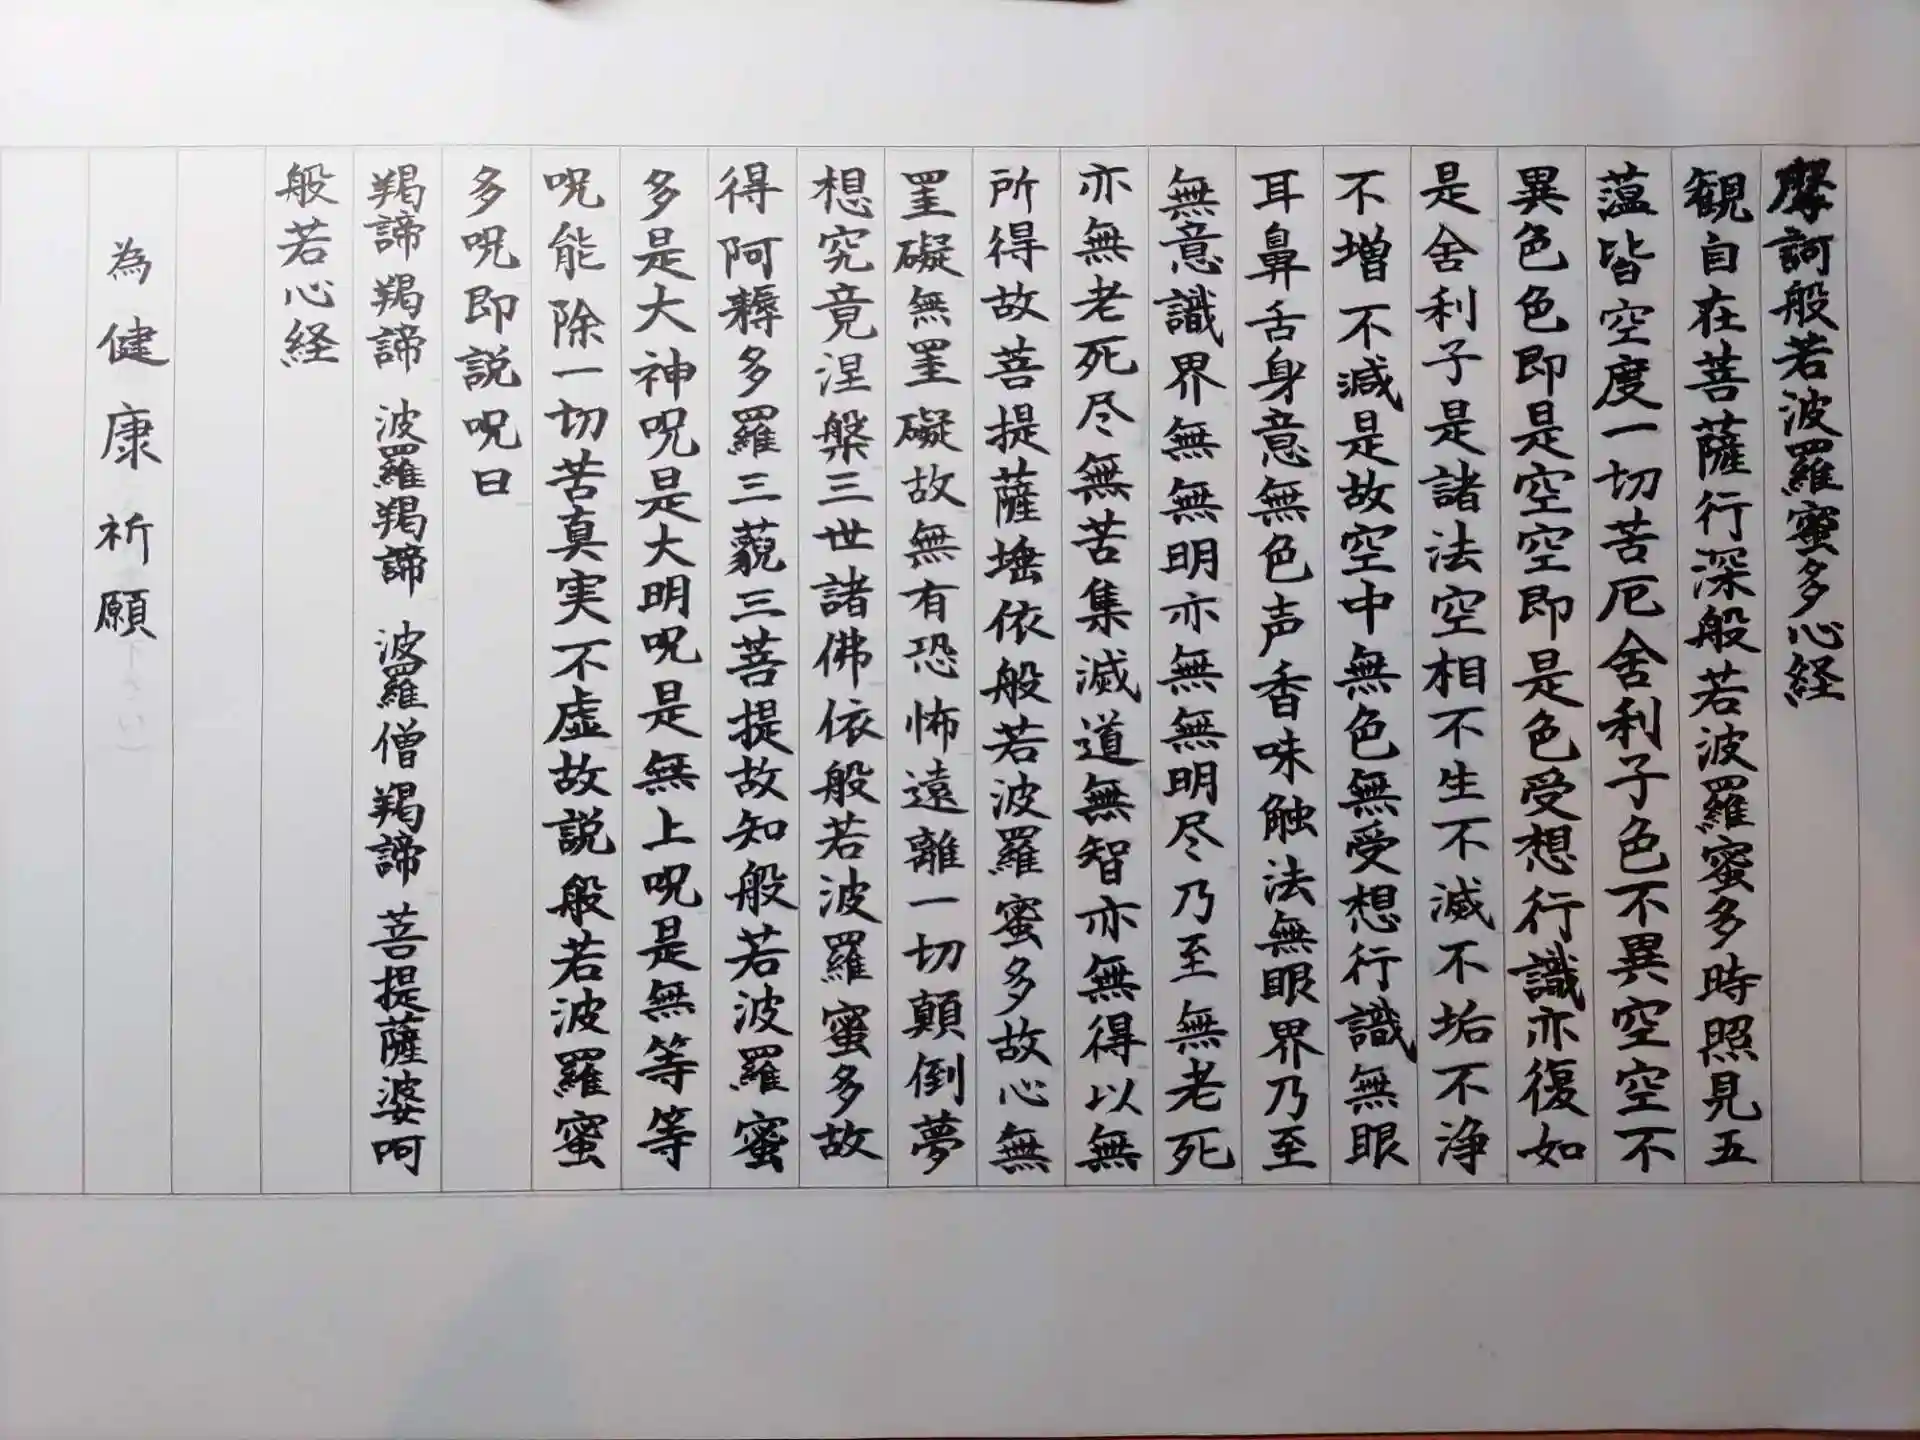 摩訶般若波羅蜜多心経
観自在菩薩行深般若波羅蜜多時照見五
蕰皆空度一切苦厄舍利子色不異空空不
異色色即是空空即是色受想行識亦復如
是舍利子是諸法空相不生不滅不垢不浄
不増不減是故空中無色無受想行識無眼
耳鼻舌身意無色声香味触法無眼界乃至
無意識界無無明亦無無明尽乃至無老死
亦無老死尽無苦集滅道無智亦無得以無
所得故菩提薩埵依般若波羅蜜多故心無
罣礙無罣礙故無有恐怖遠離一切顛倒夢
想究竟涅槃三世諸佛依般若波羅蜜多故
得阿耨多羅三藐三菩提故知般若波羅蜜
多是大神呪是大明呪是無上呪是無等等
呪能除一切苦真実不虚故説般若波羅蜜
多呪即説呪曰
羯諦羯諦 波羅羯諦 波羅僧羯諦 菩提薩婆呵
般若心経
為健康祈願